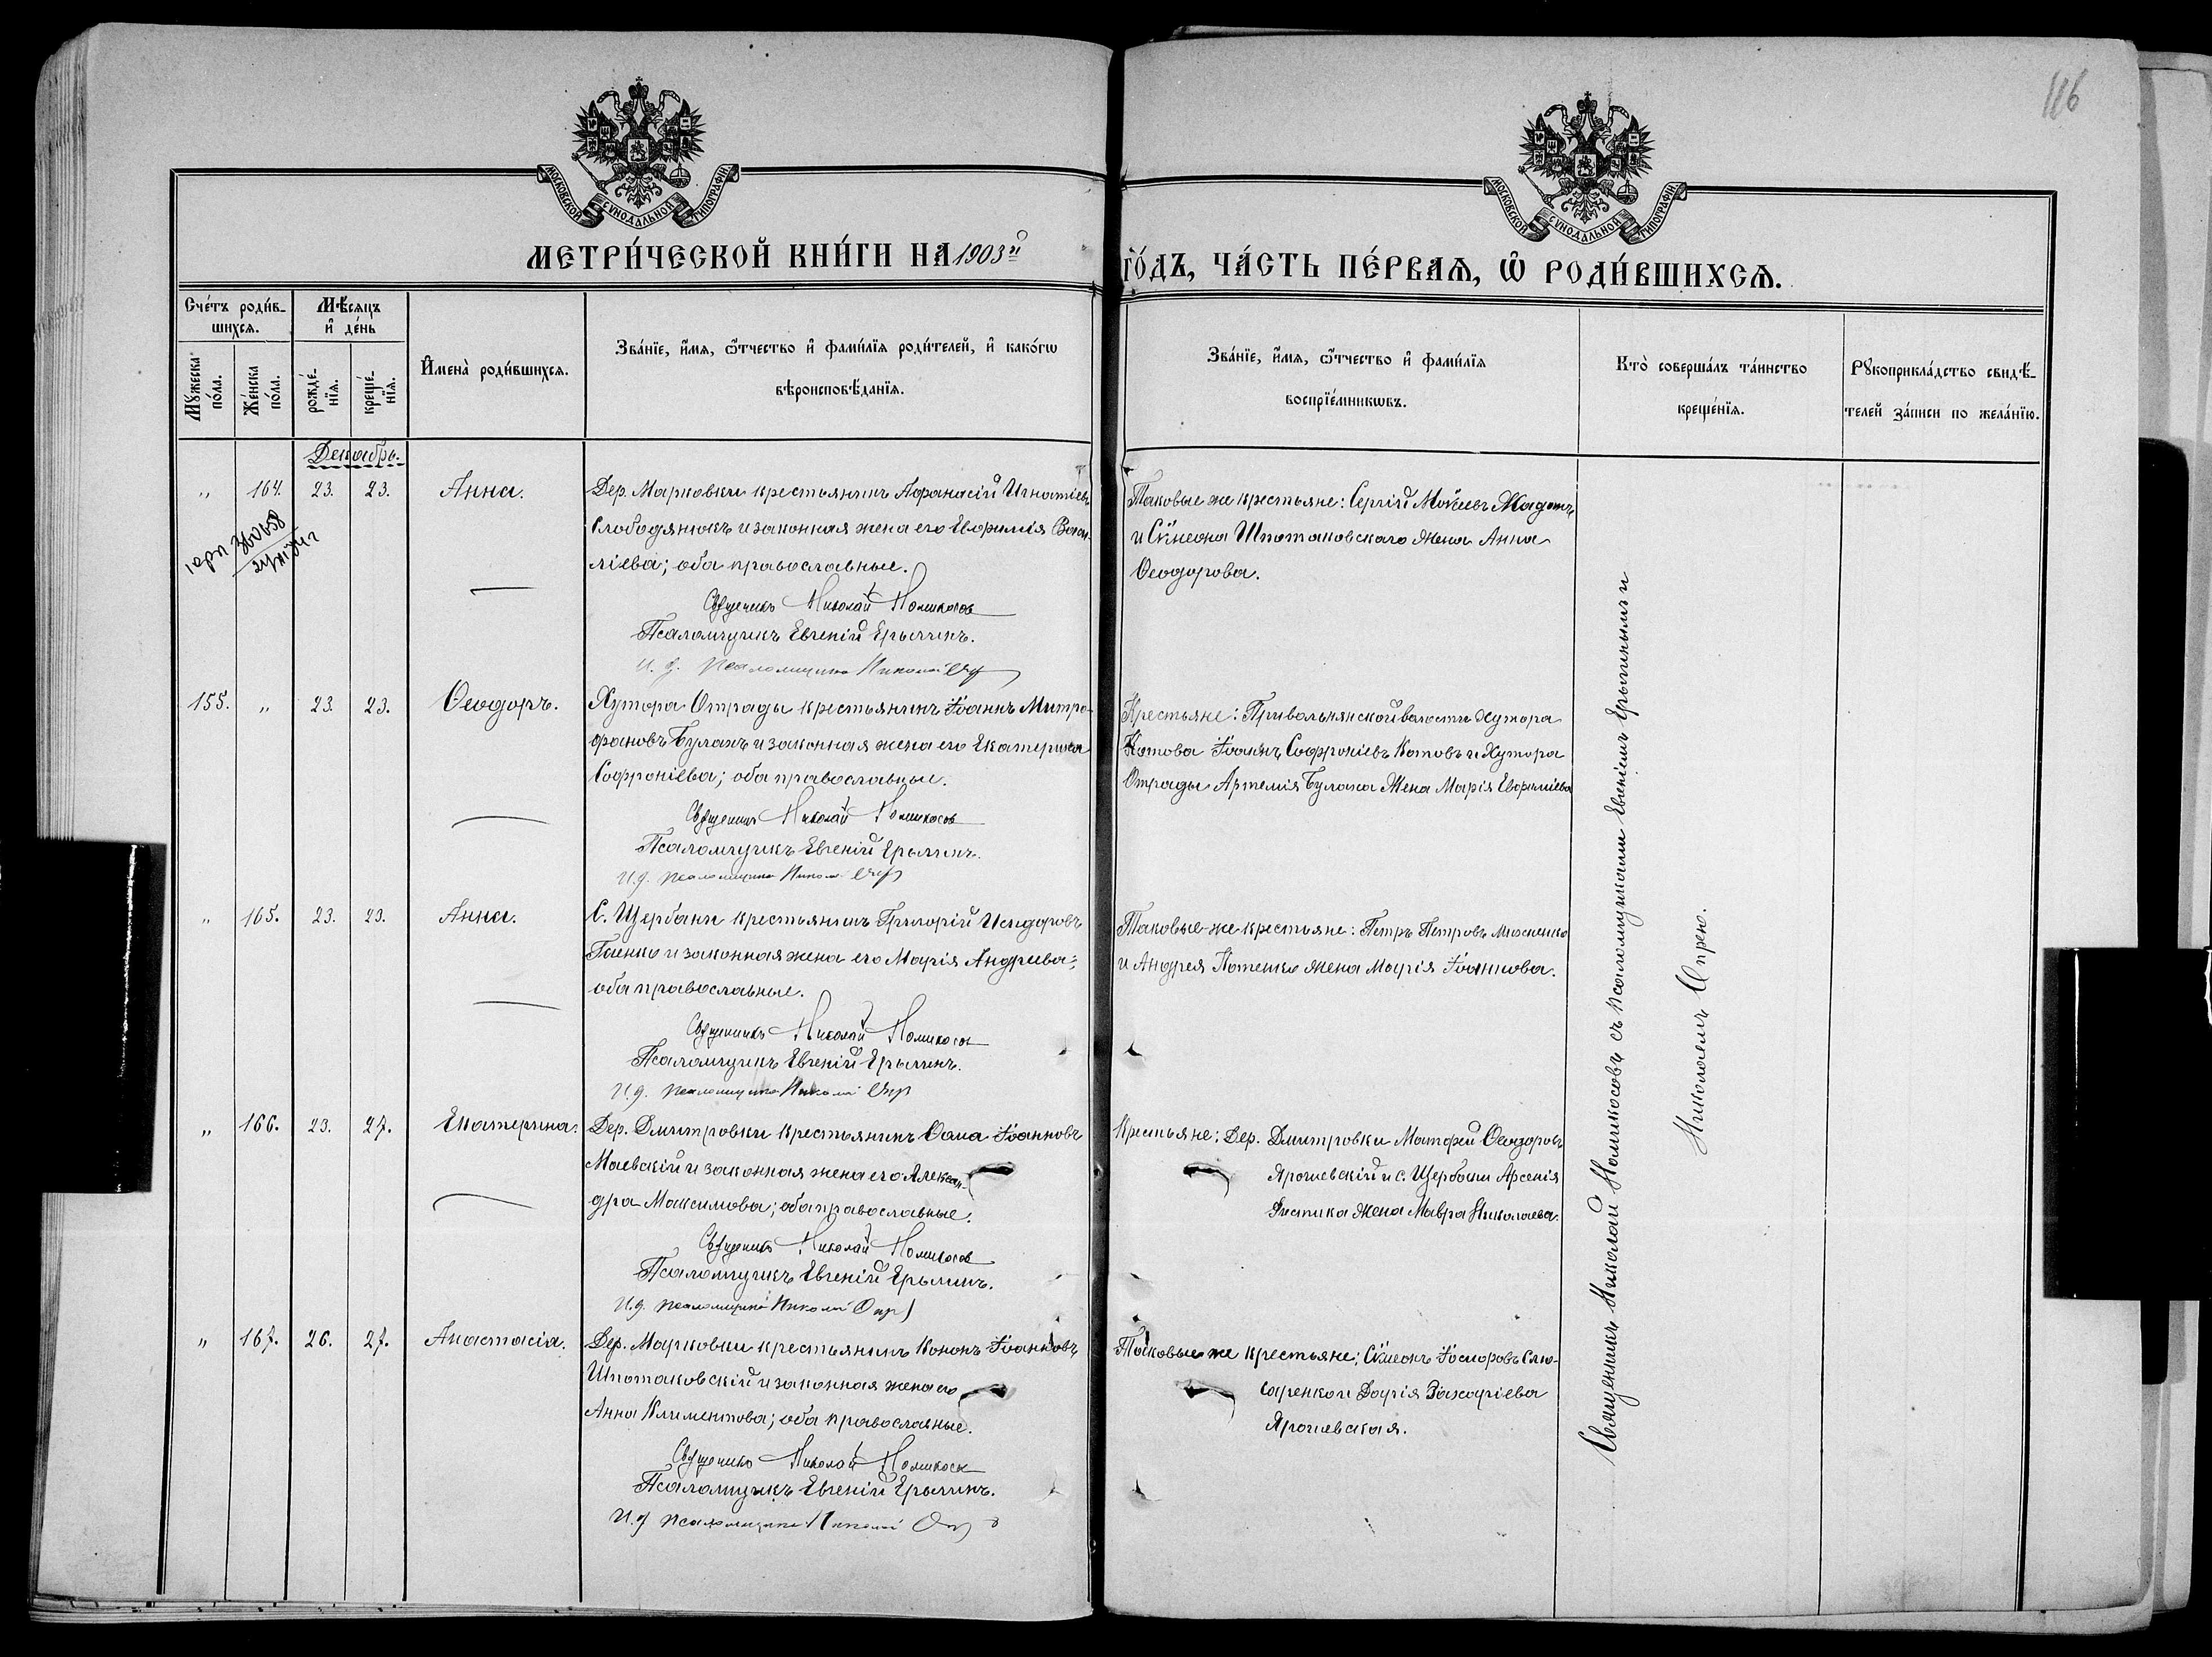 116
МОСКОВСКОЙ СѴНОДАЛЬНОЙ ТИПОГРАФІИ
МОСКОВСКОЙ СѴНОДАЛЬНОЙ ТИПОГРАФІИ
МЕТРИ́ЧЕСКОЙ КНИ́ГИ НА 1903й
ГО́ДЪ, ЧА́СТЬ ПЕ́РВАѦ, Ѽ РОДИ́ВШИХСѦ.
Сче́тъ роди́в-
шихсѧ.
Мѣ́сѧцъ
и҆ де́нь
Мꙋ́жеска по́ла.
Же́нска по́ла.
рожде́-
нїѧ.
креще́-
нїѧ.
И҆мена̀ роди́вшихсѧ.
Зва́нїе, и҆́мѧ, ѻ҆́тчество и҆ фами́лїѧ роди́телей, и҆ како́гѡ
вѣроисповѣ́данїѧ.
Зва́нїе, и҆́мѧ, ѻ҆́тчество и҆ фами́лїѧ
воспрїе́мникѡвъ.
Кто̀ соверша́лъ та́инство
креще́нїѧ.
Рꙋкоприкла́дство свидѣ́-
телей за́писи по жела́нїю.
Декабрь.
„ 164. 23. 23. Анна.
Дер. Марковки крестьянинъ Афанасій Игнатіевъ
Слободянюкъ и законная жена его Евфимія Васи-
ліева; оба православные.
Священникъ Николай Номикосов
Псаломщикъ Евгеній Ерыгинъ.
И. д. псаломщика Николай
Таковые же крестьяне: Сергій Моѵсеевъ
и Сѵмеона Шпотаковскаго жена Анна
Ѳеодорова.
155. „ 23. 23. Ѳеодоръ.
Хутора Отрады крестьянинъ Іоаннъ Митро-
фановъ Булахъ и законная жена его Екатерина
Софроніева; оба православные.
Священникъ Николай Номикосов
Псаломщикъ Евгеній Ерыгинъ.
И. д. псаломщика Никол
Крестьяне: Привольнянской волости хутора
Котова Іоаннъ Софроніевъ Котовъ и Хутора
Отрады Артемія Булаха жена Марія Евфиміева
„ 165. 23. 23. Анна.
С. Щербани крестьянинъ Григорій Исидоровъ
Гаенко и законная жена его Марія Андреева;
оба православные.
Священникъ Николай Номикосов
Псаломщикъ Евгеній Ерыгинъ.
И. д. псаломщика Николай
Таковые-же крестьяне: Петръ Петровъ
и Андрея Потенко жена Марія Іоаннова.
„ 166. 23. 27. Екатерина.
Дер. Дмитровки крестьянинъ Ѳома Іоанновъ
Маевскій и законная жена его Алексан-
дра Максимова; оба православные.
Священникъ Николай Номикосов
Псаломщикъ Евгеній Ерыгинъ.
И. д. псаломщика Николай
Крестьяне: Дер. Дмитровки Матфей Ѳеодоровъ
Ярошевскій и с. Щербани Арсенія
жена Мавра Николаева.
„ 167. 26. 27. Анастасія.
Дер. Марковки крестьянинъ Кононъ Іоанновъ
Шпотаковскій и законная жена его
Анна Климентова; оба православные.
Священникъ Николай Номикосов
Псаломщикъ Евгеній Ерыгинъ.
И. д. псаломщика Николай
Таковые же крестьяне; Сѵмеонъ Слю-
саренко и Дарія Захаріева
Ярошевская.
Священникъ Николай Номикосовъ съ псаломщиками Евгеніемъ Ерыгинымъ и
Николаемъ Опрею.